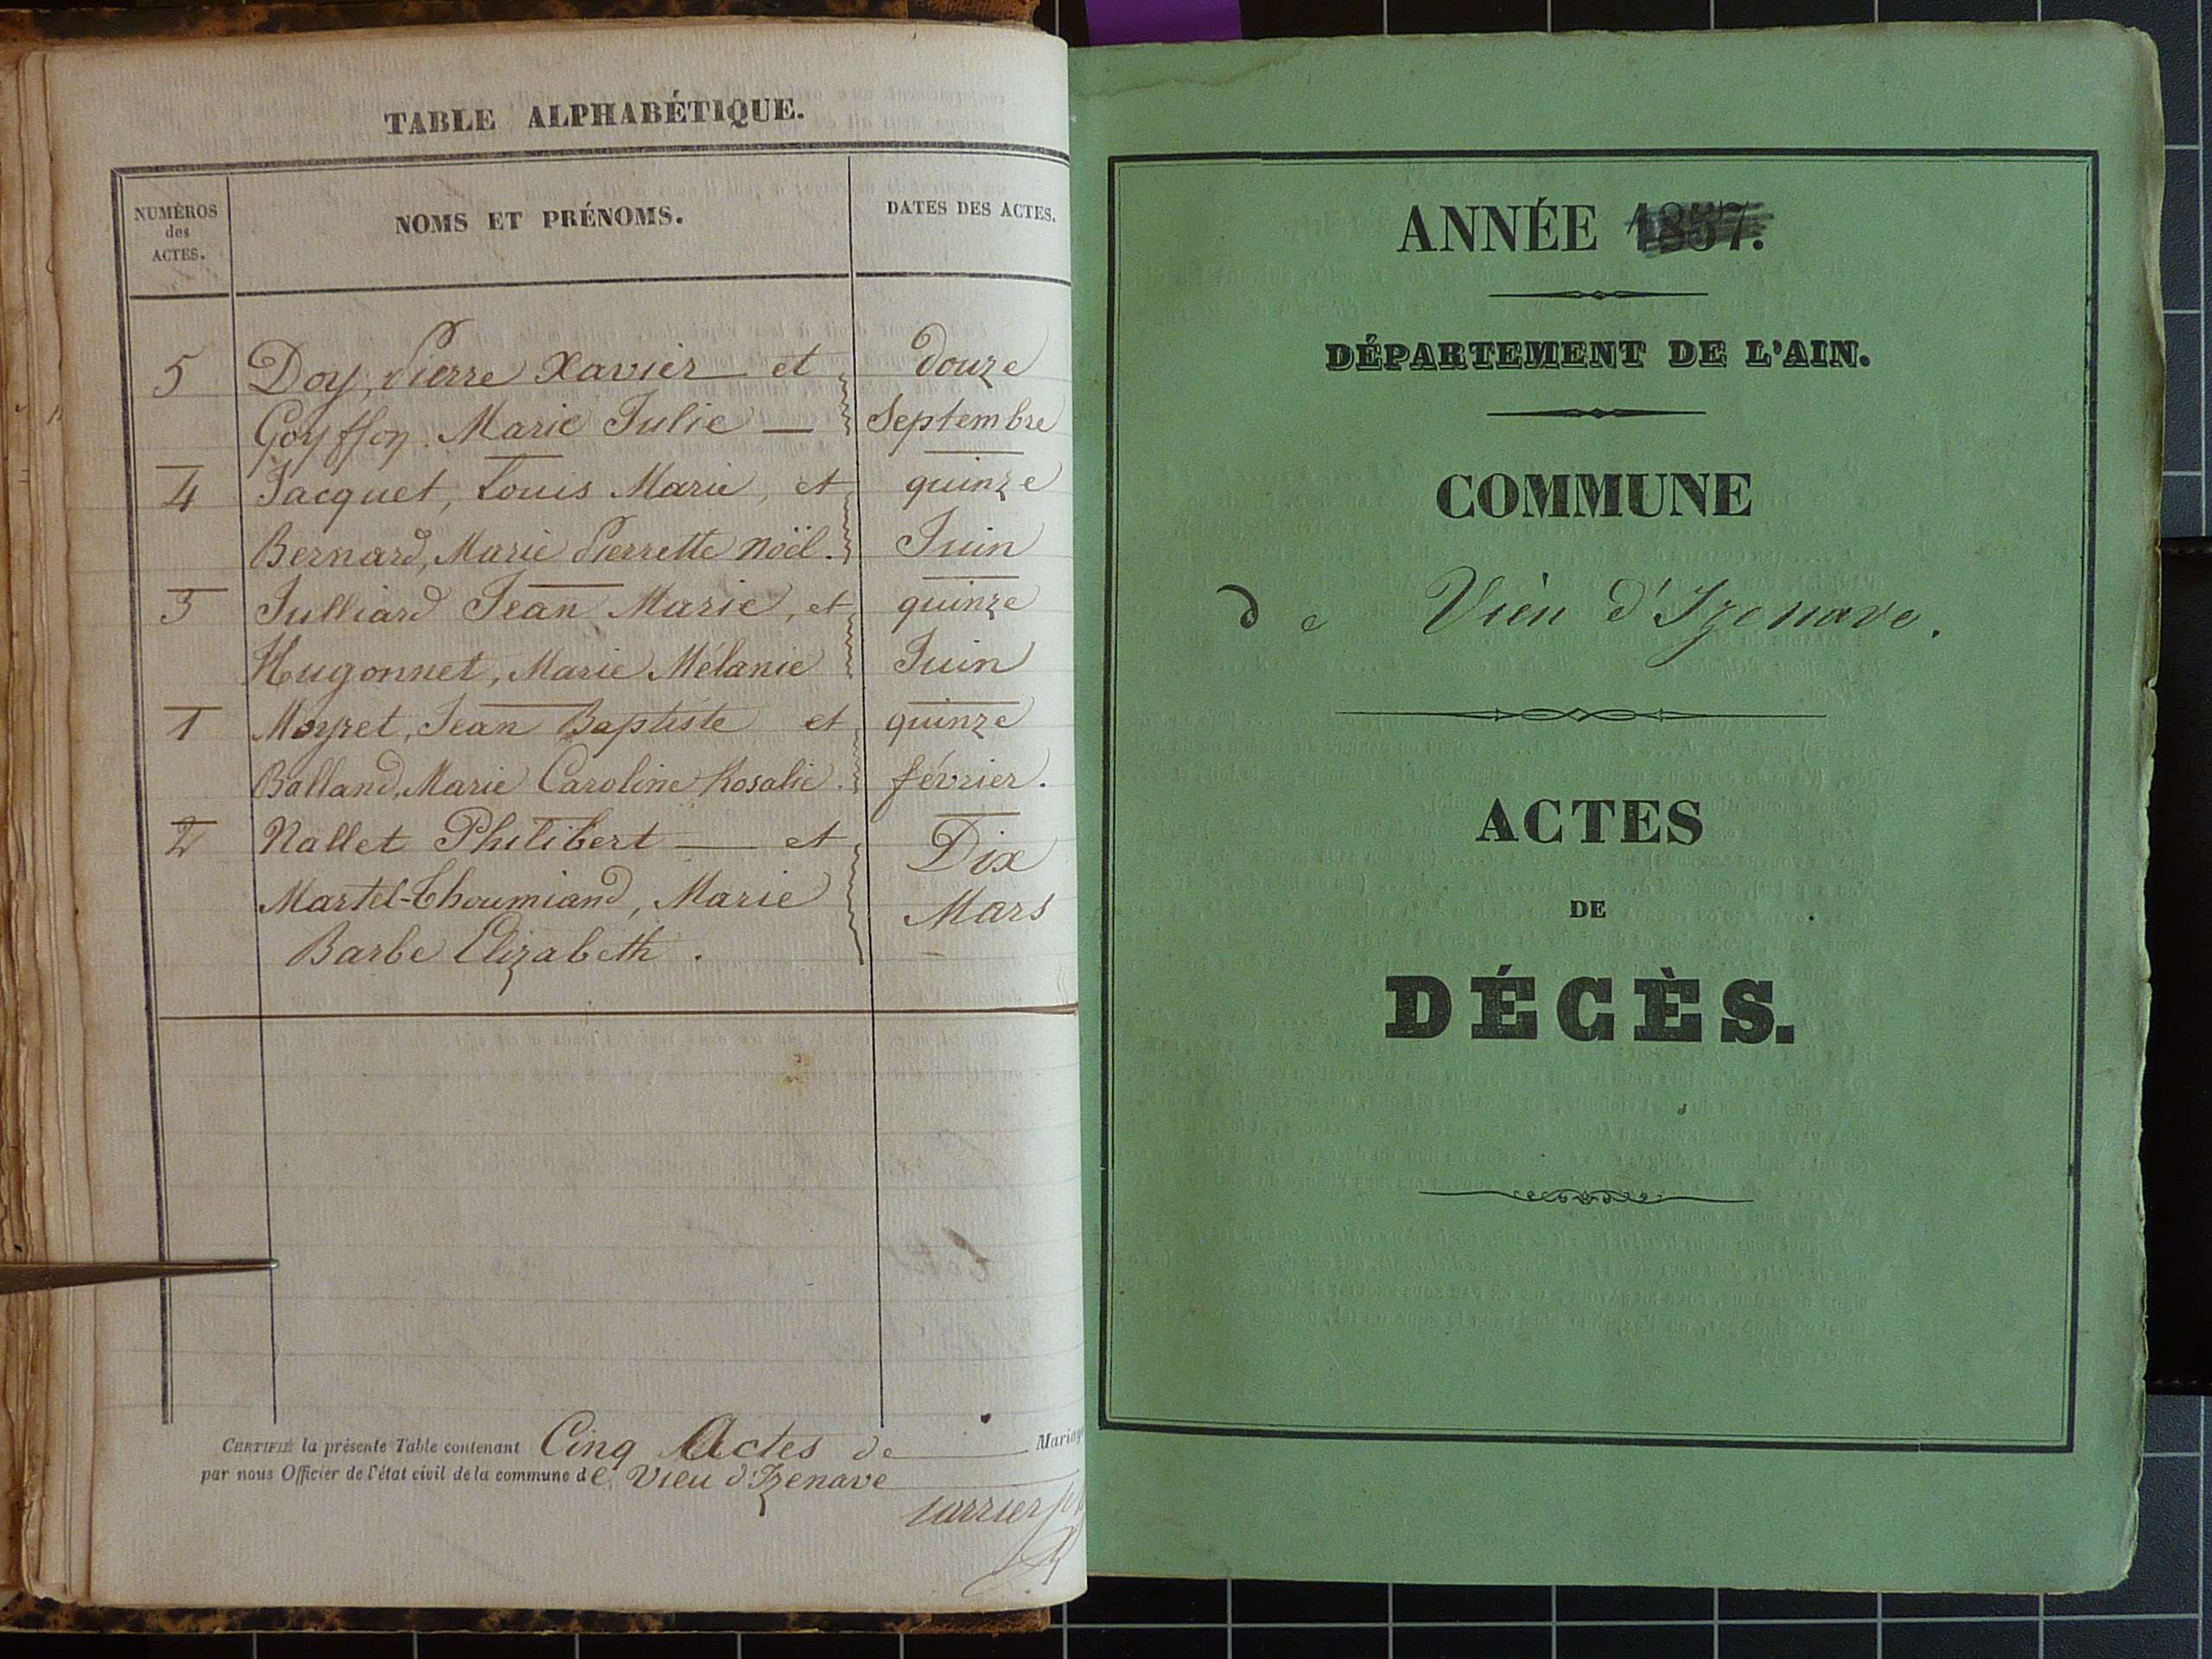 TABLE ALPHABÉTIQUE.
NUMÉROS
des
ACTES.
NOMS ET PRÉNOMS.
DATES DES ACTES.
5 Doy, Pierre Xavier et douze
Goyffon Marie Julie Septembre
4 Jacquet, Louis Marie, et quinze
Bernard, Marie Pierrette Noël. Juin
3 Julliard Jean Marie, et quinze
Hugonnet, Marie Mélanie Juin
1 Moyret, Jean Baptiste et quinze
Balland, Marie Caroline Rosalie. février.
2 Nallet Philibert et Dix
Martel-Thoumiand, Marie Mars
Barbe Elizabeth.
CERTIFIÉ la présente Table contenant Cinq Actes de Mariag
par nous Officier de l'état civil de la commune de Vieu d'Izenave
ANNÉE 1857.
DÉPARTEMENT DE L'AIN.
COMMUNE
de Vieu d'Izenave.
ACTES
DE
DÉCÈS.